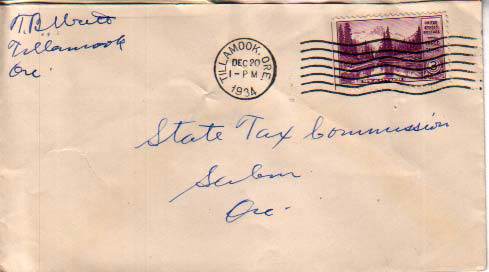 Tillamook
Ore.
TILLAMOOK, ORE
DEC 20
1-PM
1934
UNITED STATES
3
State Tax Commission
Salem
Ore.